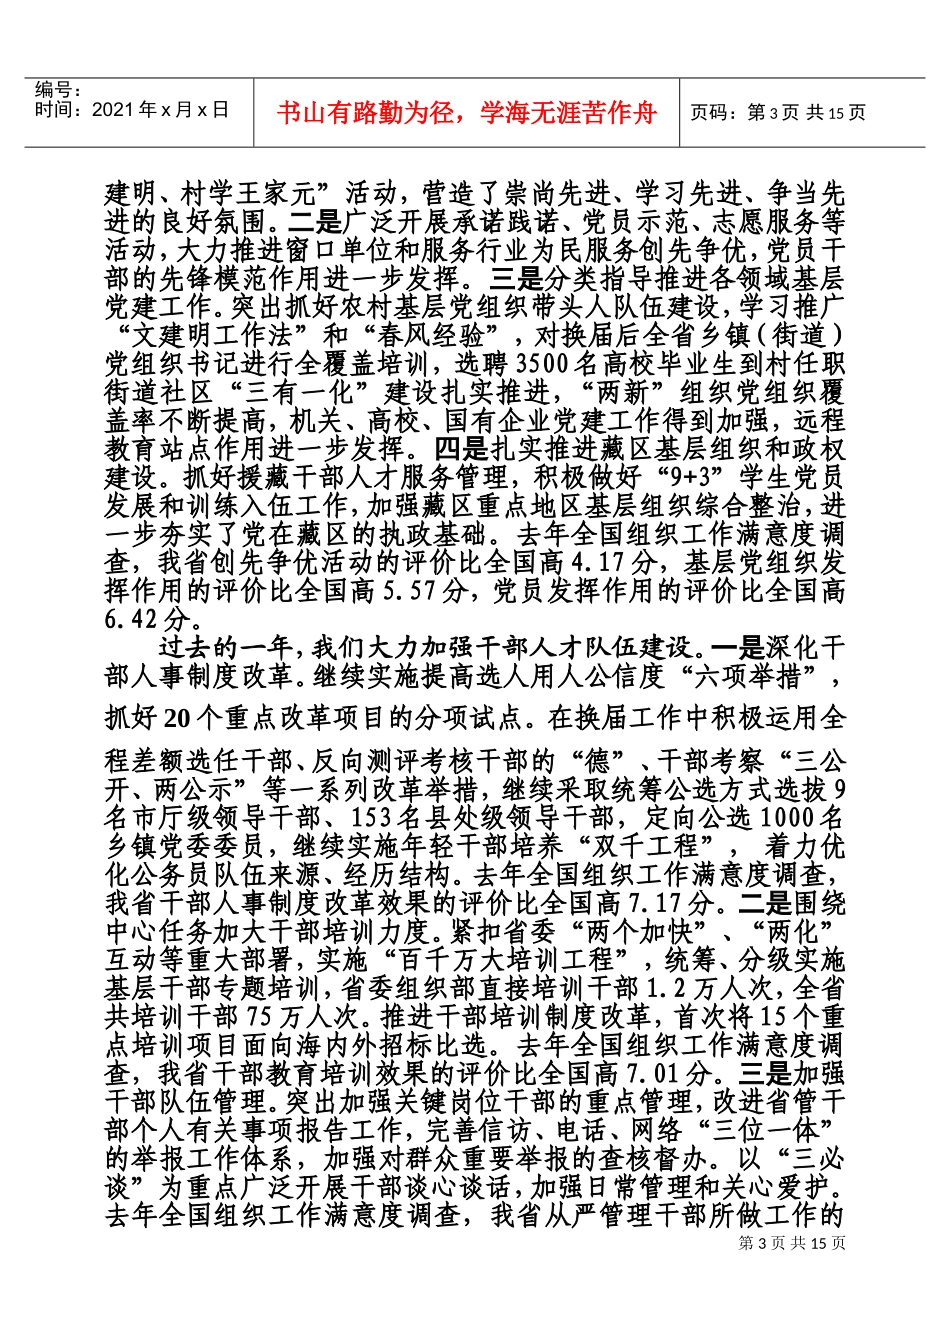 编号：
时间：2021年x月x日
书山有路勤为径，学海无涯苦作舟
页码：第3页 共15页
建明、村学王家元”活动，营造了崇尚先进、学习先进、争当先
进的良好氛围。二是广泛开展承诺践诺、党员示范、志愿服务等
活动，大力推进窗口单位和服务行业为民服务创先争优，党员干
部的先锋模范作用进一步发挥。三是分类指导推进各领域基层
党建工作。突出抓好农村基层党组织带头人队伍建设，学习推广
“文建明工作法”和“春风经验”，对换届后全省乡镇（街道）
党组织书记进行全覆盖培训，选聘3500名高校毕业生到村任职
街道社区“三有一化”建设扎实推进，“两新”组织党组织覆
盖率不断提高，机关、高校、国有企业党建工作得到加强，远程
教育站点作用进一步发挥。四是扎实推进藏区基层组织和政权
建设。抓好援藏干部人才服务管理，积极做好“9+3”学生党员
发展和训练入伍工作，加强藏区重点地区基层组织综合整治，进
一步夯实了党在藏区的执政基础。去年全国组织工作满意度调
查，我省创先争优活动的评价比全国高4.17分，基层党组织发
挥作用的评价比全国高5.57分，党员发挥作用的评价比全国高
6.42分。
过去的一年，我们大力加强干部人才队伍建设。一是深化干
部人事制度改革。继续实施提高选人用人公信度“六项举措”，
抓好20个重点改革项目的分项试点。在换届工作中积极运用全
程差额选任干部、反向测评考核干部的“德”、干部考察“三公
开、两公示”等一系列改革举措，继续采取统筹公选方式选拔9
名市厅级领导干部、153名县处级领导干部，定向公选1000名
乡镇党委委员，继续实施年轻干部培养“双千工程”，着力优
化公务员队伍来源、经历结构。去年全国组织工作满意度调查，
我省干部人事制度改革效果的评价比全国高7.17分。二是围绕
中心任务加大干部培训力度。紧扣省委“两个加快”、“两化”
互动等重大部署，实施“百千万大培训工程”，统筹、分级实施
基层干部专题培训，省委组织部直接培训干部1.2万人次，全省
共培训干部75万人次。推进干部培训制度改革，首次将15个重
点培训项目面向海内外招标比选。去年全国组织工作满意度调
查，我省干部教育培训效果的评价比全国高7.01分。三是加强
干部队伍管理。突出加强关键岗位干部的重点管理，改进省管干
部个人有关事项报告工作，完善信访、电话、网络“三位一体”
的举报工作体系，加强对群众重要举报的查核督办。以“三必
谈”为重点广泛开展干部谈心谈话，加强日常管理和关心爱护。
去年全国组织工作满意度调查，我省从严管理干部所做工作的
第3页共15页